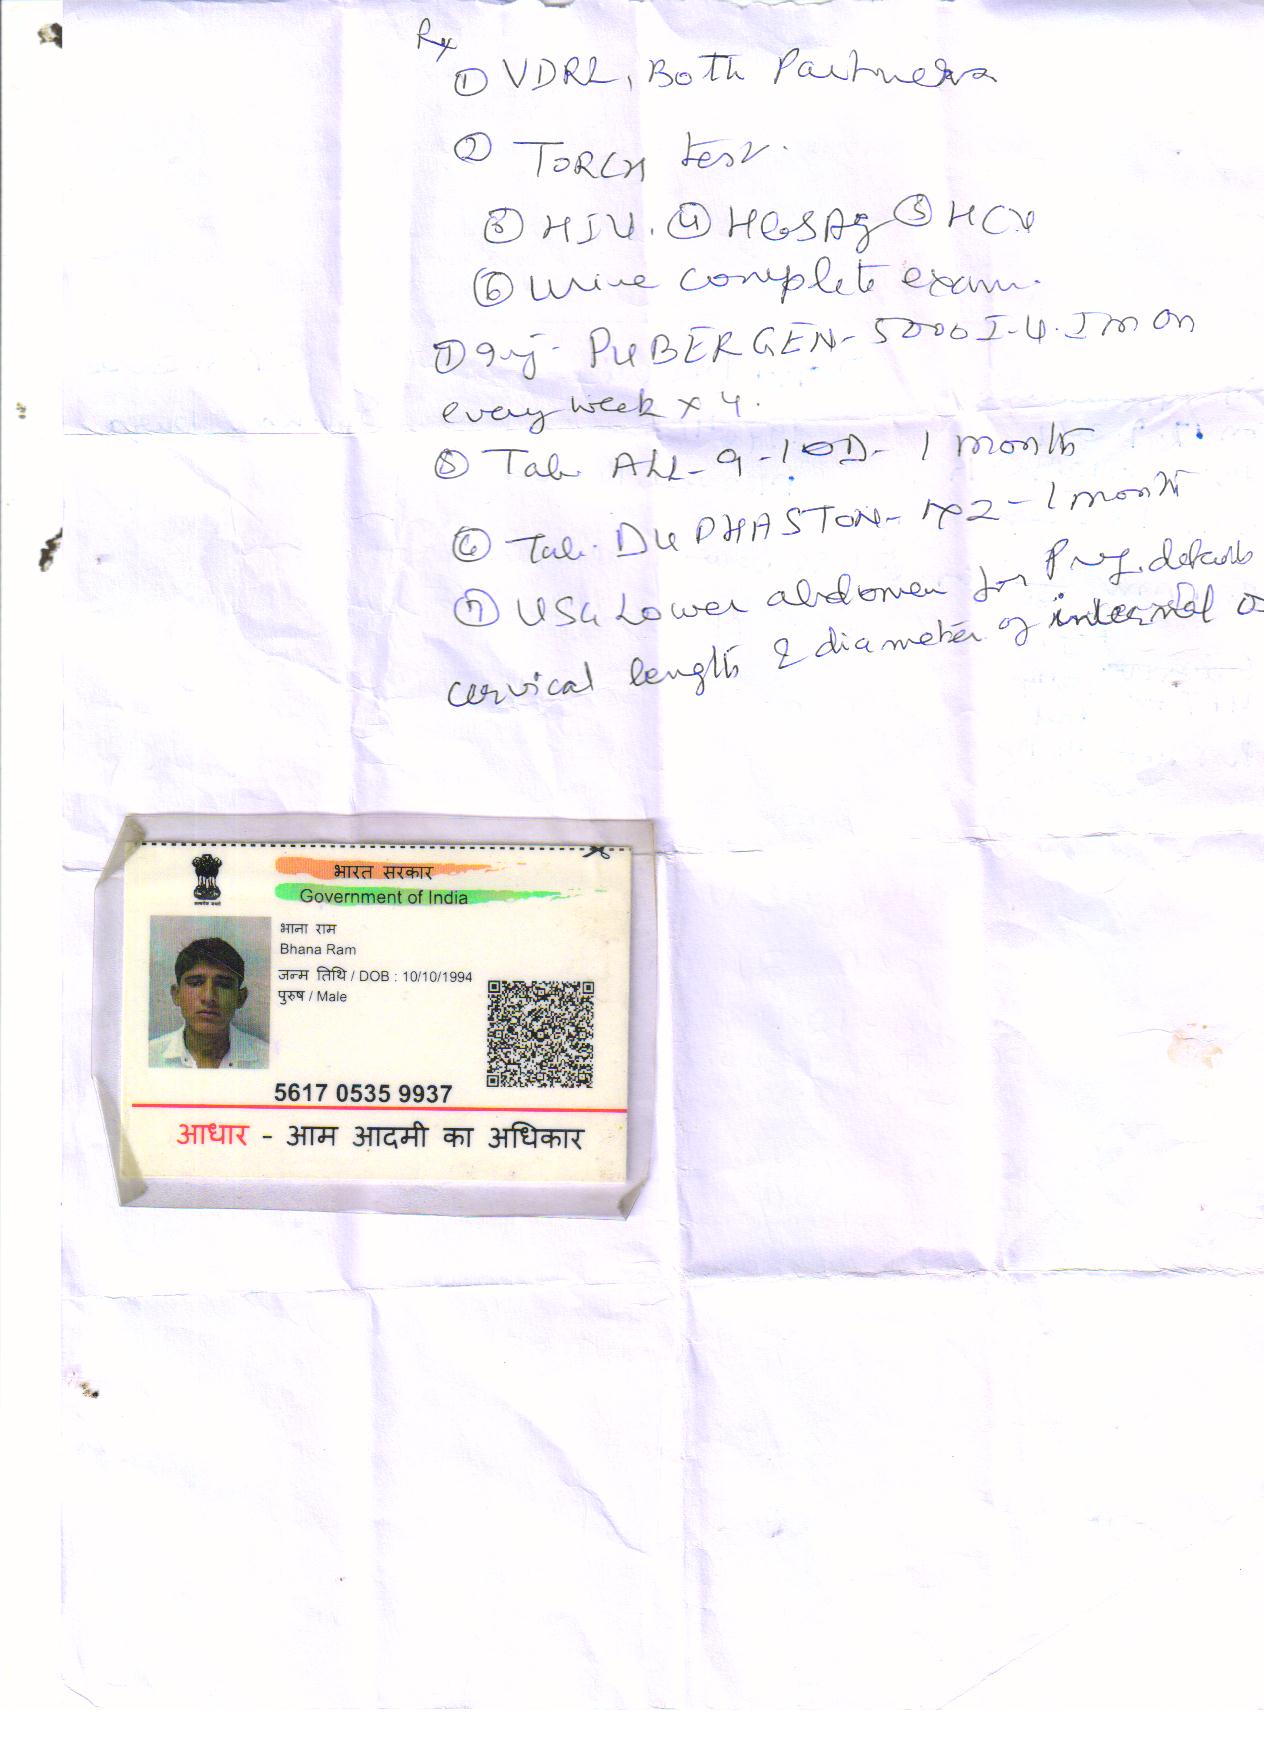 Rx
① VDRL, Both Partners
② TORCH test.
③ HIV. ④ HBSAg ⑤ HCV
⑥ Urine complete exam.
① Inj- PUBERGEN- 5000 I.U. IM on
every week x 4.
⑤ Tab ALL-9-1 OD- 1 month
⑥ Tab. DUPHASTON- 1x2 - 1 month
⑦ USG Lower abdomen for Preg. details
cervical length & diameter of internal os
भारत सरकार
Government of India
भाना राम
Bhana Ram
जन्म तिथि / DOB : 10/10/1994
पुरुष / Male
5617 0535 9937
आधार - आम आदमी का अधिकार